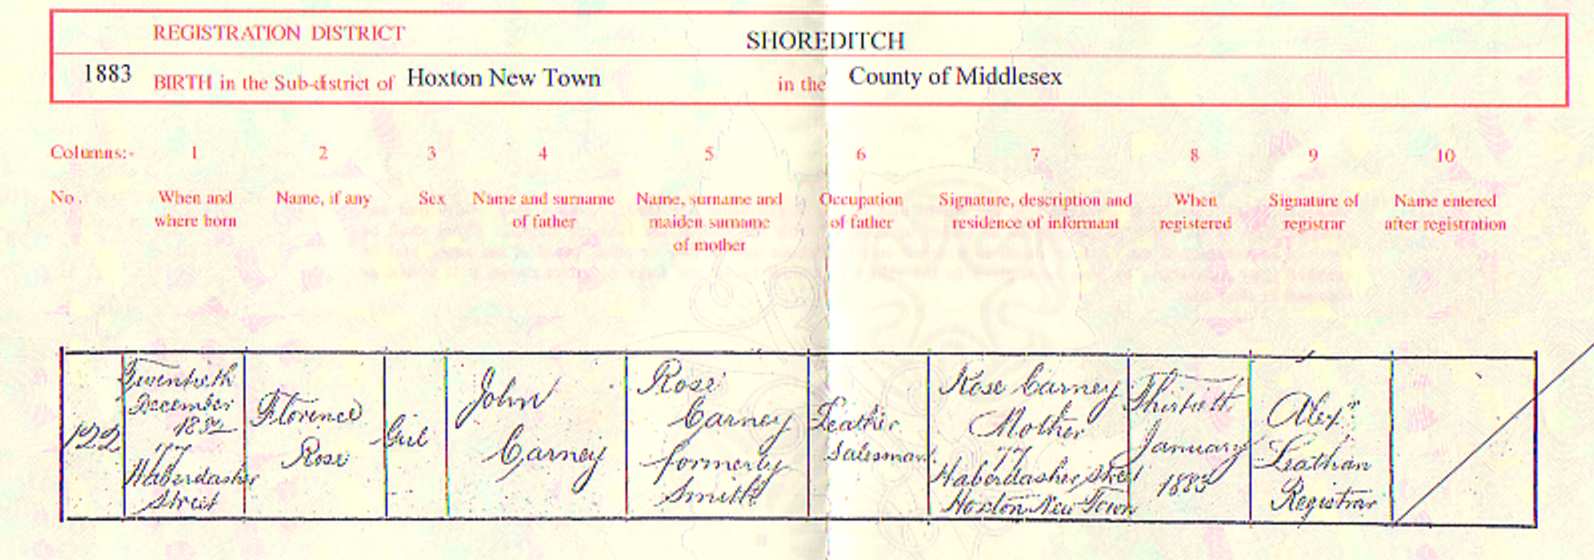 REGISTRATION DISTRICT SHOREDITCH
1883 BIRTH in the Sub-district of Hoxton New Town in the County of Middlesex
Columns:- 1 2 3 4 5 6 7 8 9 10
No. When and where born Name, if any Sex Name and surname of father Name, surname and maiden surname of mother Occupation of father Signature, description and residence of informant When registered Signature of registrar Name entered after registration
122
Twentieth
December
1882
77
Haberdasher
Street
Florence
Rose
Girl
John
Carney
Rose
Carney
formerly
Smith
Leather
Salesman
Rose Carney
Mother
77
Haberdasher Street
Hoxton New Town
January
1883
Alexr
Leathan
Registrar